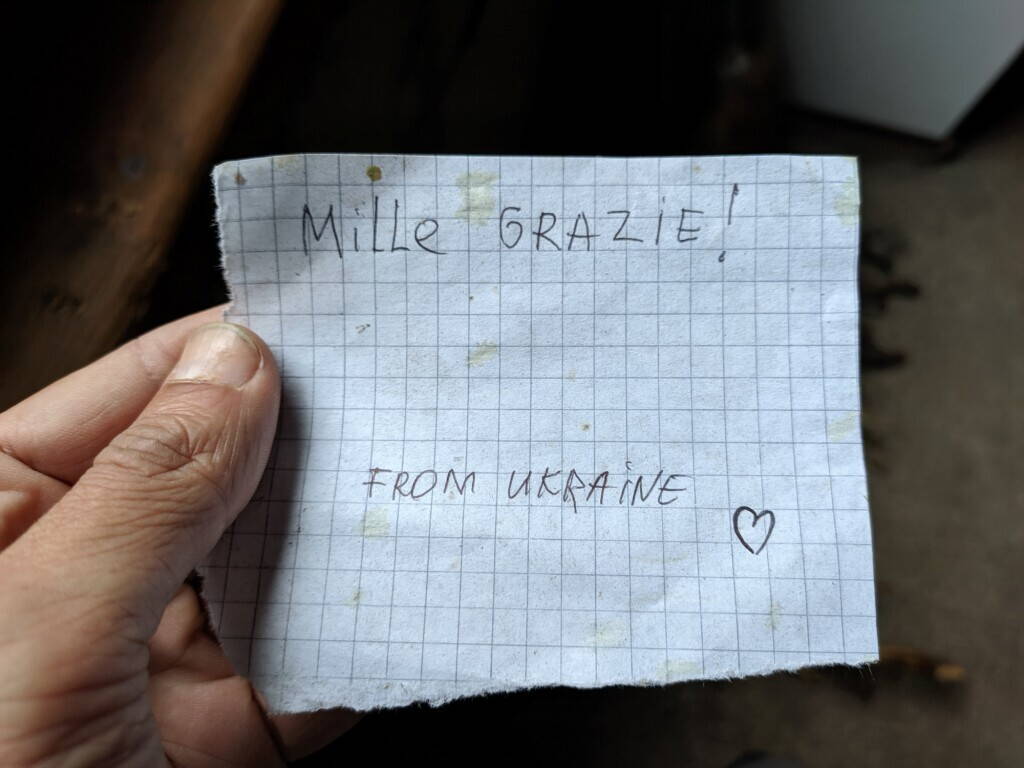 Mille GRAZIE!
FROM UKRAINE
♡